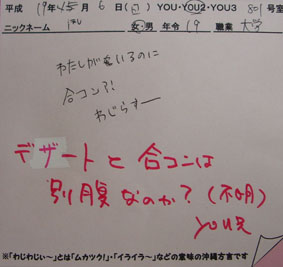 平成19年4月6日(日)YOU・YOU2・YOU3 801号室
ニックネーム 女・男 年令19 職業 大学
わたしがいるのに
合コン?!
わじらすー
デザートと合コンは
別腹なのか?(不明)
you兄
※「わじわじぃ〜」とは「ムカツク!」・「イライラ〜」などの意味の沖縄方言です